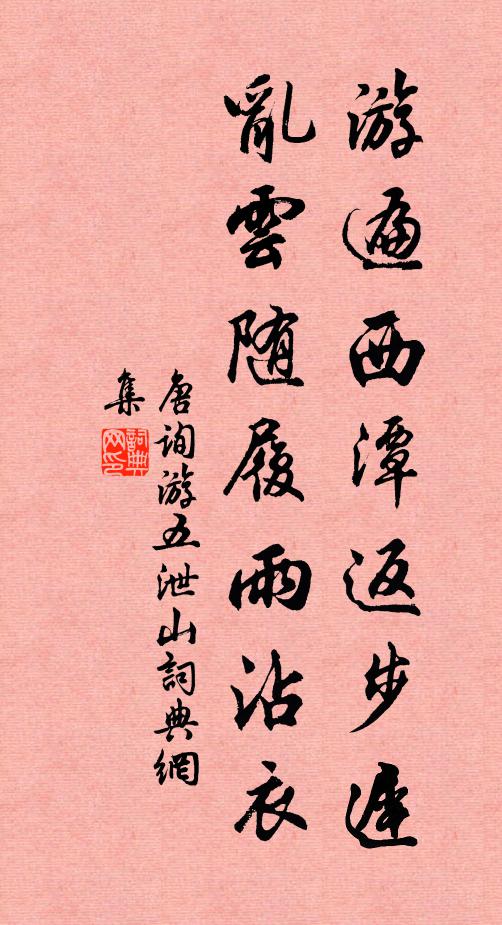 游遍西潭返步遲
亂雲随履雨沾衣
唐詢游五泄山詞典網
集
詞典网印